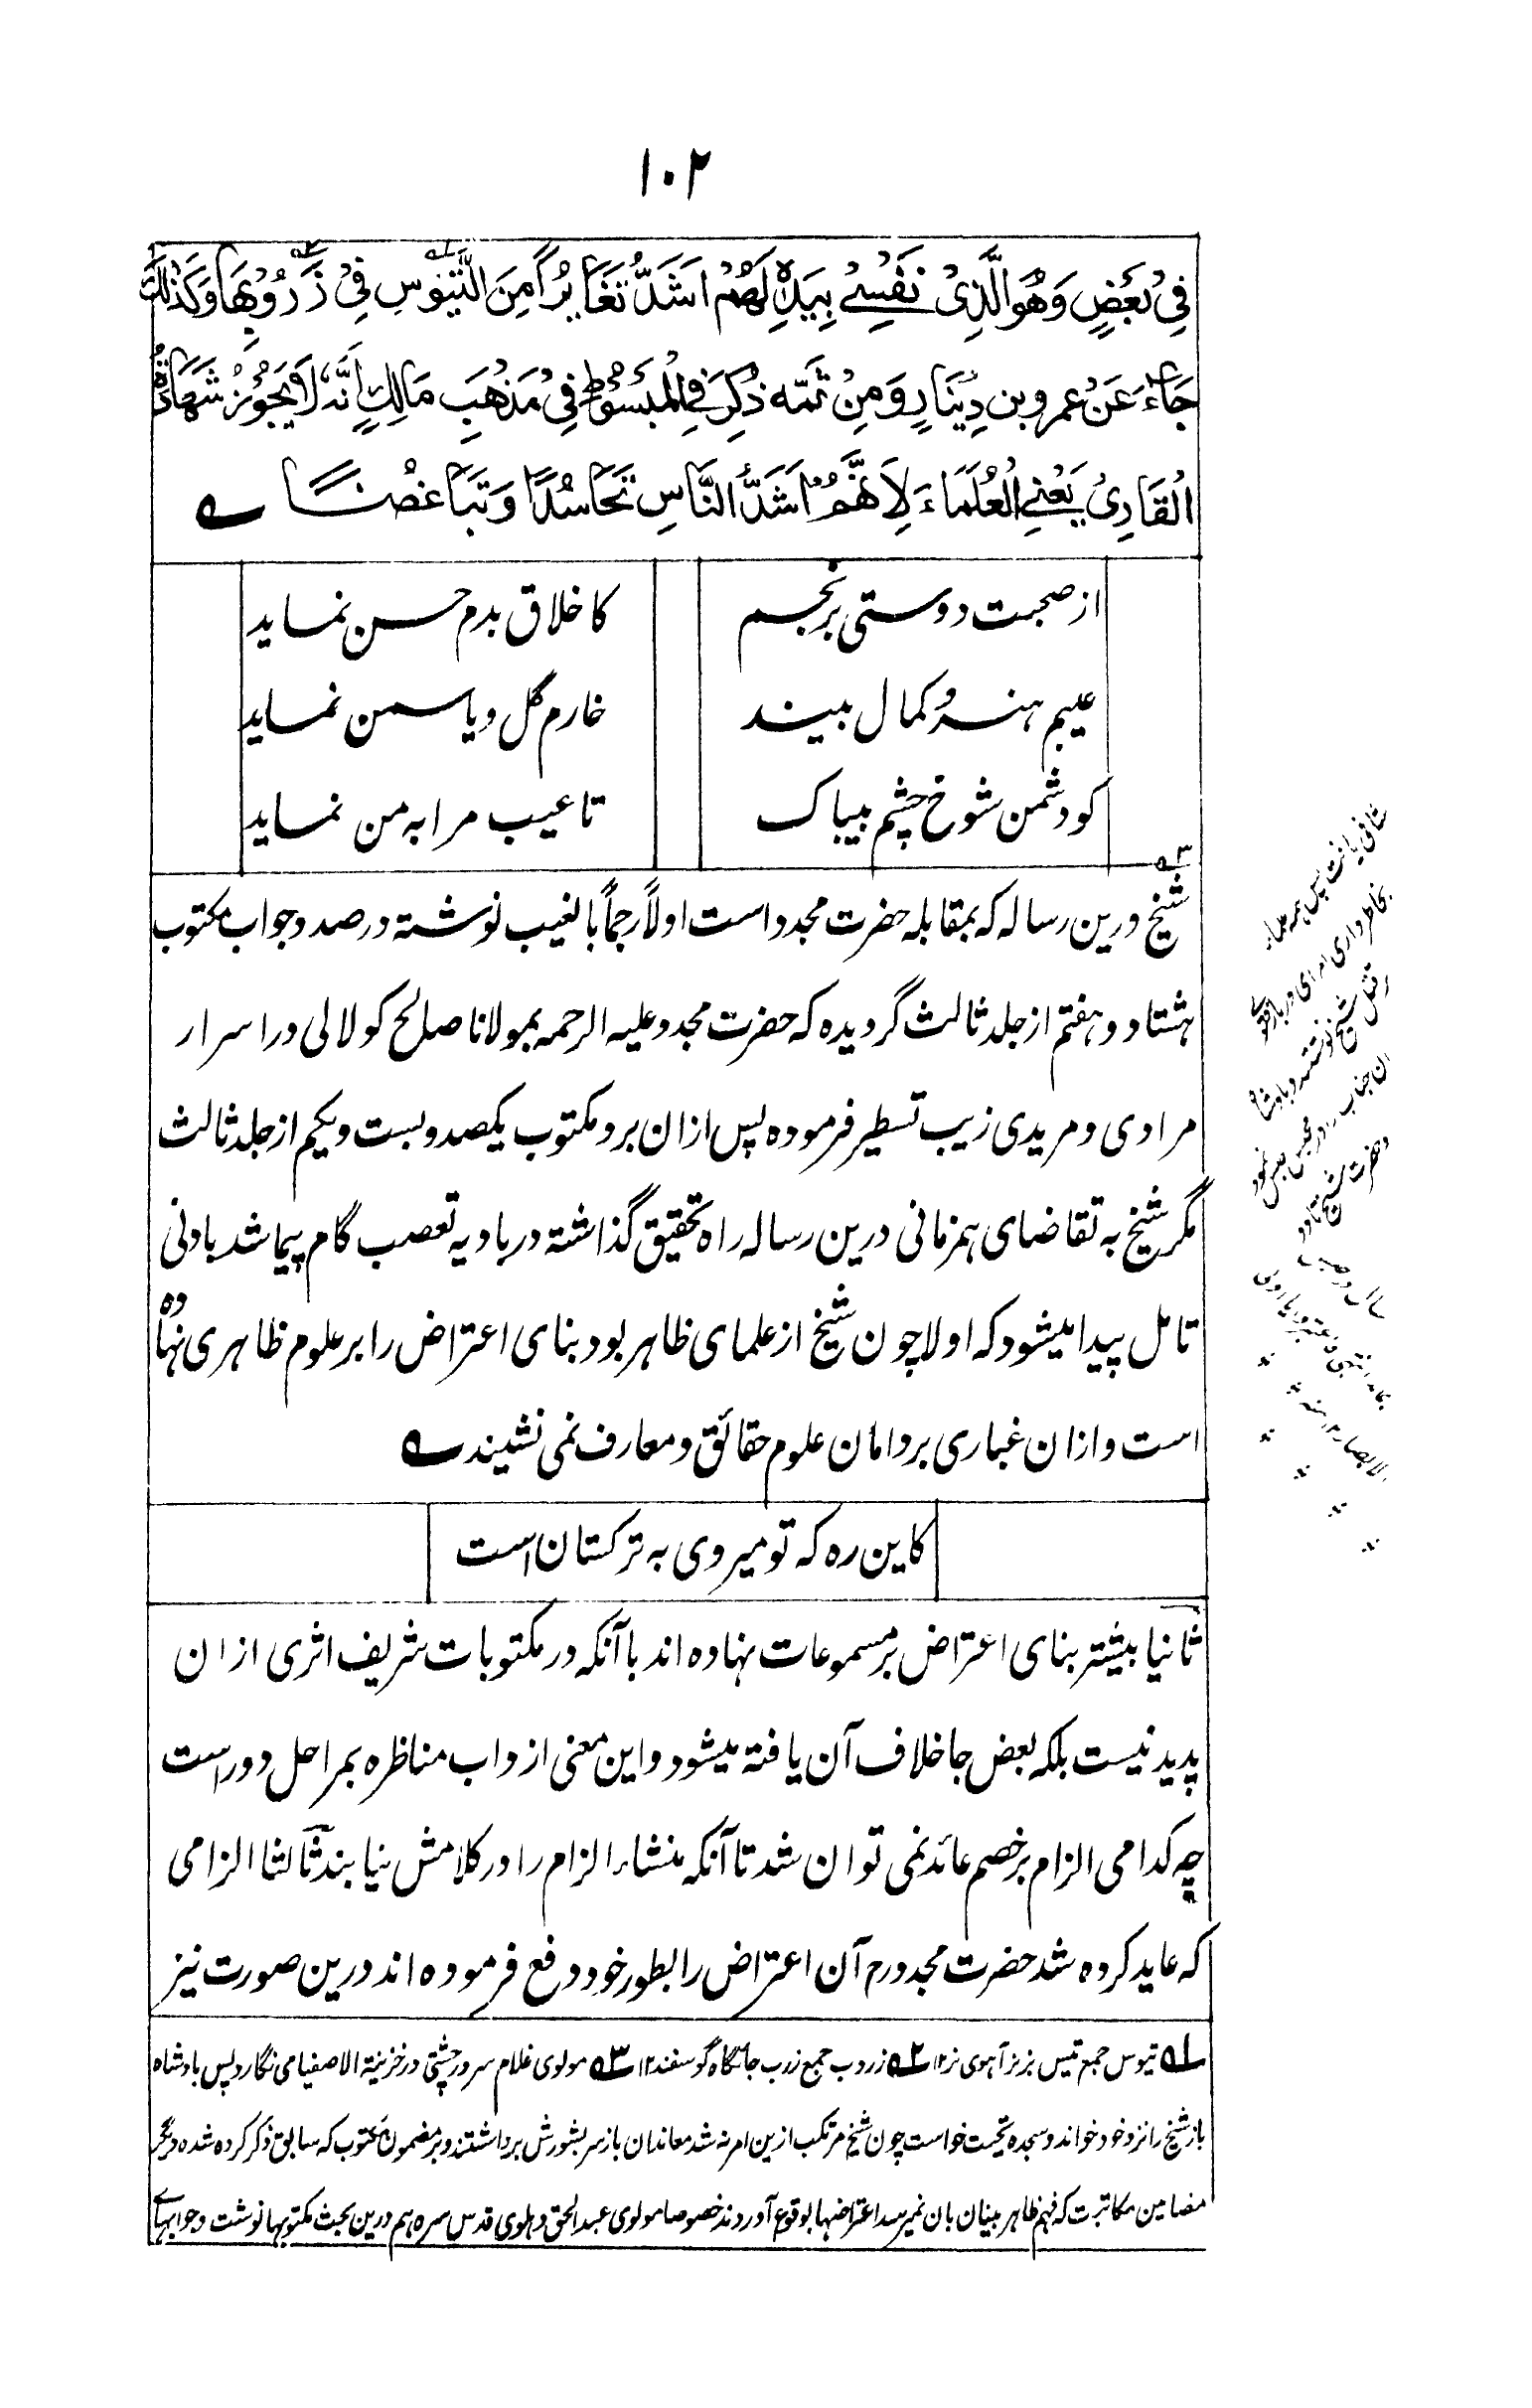 ۱۰۲
فِيْ بَعْضٍ وَهُوَ الَّذِيْ نَفْسِيْ بِيَدِهٖ لَهُمْ اَشَدُّ تَغَايُرًا مِنَ التُّيُوْسِ فِيْ زَرُوْبِهَا وَكَذٰلِكَ
جَاءَ عَنْ عمرو بن دِيْنَارٍ وَمِنْ ثَمَّه ذُكِرَ فِي الْمَبْسُوْطِ فِيْ مَذْهَبِ مَالِكٍ اَنَّهٗ لَا يَجُوْزُ شَهَادَةُ
الْقَارِىْ يَعْنِي الْعُلَمَاءَ لِاَنَّهُمْ اَشَدُّ النَّاسِ تَحَاسُدًا وَتَبَاغُضًا ؎
از صحبت دوستی برنجم کاخلاق بدم حسن نماید
عیبم هنر و کمال بیند خارم گل و یاسمن نماید
کو دشمن شوخ چشم بیباک تا عیب مرا به من نماید
شیخ درین رساله که بمقابله حضرت مجدد است اولاً رجماً بالغیب نوشته در صدد جواب مکتوب
هشتاد و هفتم از جلد ثالث گردیده که حضرت مجدد علیه الرحمه بمولانا صالح کولالی در اسرار
مرادی و مریدی زیب تسطیر فرموده پس ازان برد مکتوب یکصد و بست و یکم از جلد ثالث
مگر شیخ به تقاضای همزمانی درین رساله راه تحقیق گذاشته در بادیه تعصب گام پیما شد بادنی
تامل پیدا میشود که اولا چون شیخ از علمای ظاهر بود بنای اعتراض را بر علوم ظاهری نهاده
است و ازان غباری بر دامان علوم حقائق و معارف نمی نشیند ؎
کاین ره که تو میروی به ترکستان است
ثانیا بیشتر بنای اعتراض بر مسموعات نهاده اند با آنکه در مکتوبات شریف اثری ازان
پدید نیست بلکه بعض جا خلاف آن یافته میشود و این معنی از داب مناظره بمراحل دور است
چه کدامی الزام بر خصم عائد نمی توان شد تا آنکه منشاء الزام را در کلامش نیابند ثالثا الزامی
که عاید کرده شد حضرت مجدد رم آن اعتراض را بطور خود دفع فرموده اند درین صورت نیز
۱؎ تیوس جمع تیس بز نر آهوی نر ۱۲ ۲؎ زروب جمع زرب جائگاه گوسفند ۱۲ ۳؎ مولوی غلام سرور چشتی در خزینة الاصفیا می نگارد پس بادشاه
باز شیخ را نزد خود خواند و سجده تحیت خواست چون شیخ مرتکب ازین امر نه شد معاندان باز سر بشورش برداشتند و بر مضمون مکتوب که سابق ذکر کرده شده دیگر
مضامین مکاتبت که فهم ظاهر بینان بان نمیرسد اعتراضها بوقوع آوردند خصوصا مولوی عبد الحق دهلوی قدس سره هم درین بحث مکتوبها نوشت و جوابهاے
شافی یافت پس همه علماء
بخاطر داری
قتل شیخ نوشتند و بادشاه
آن جناب را در مجلس
حضرت شیخ تا دو
سال در حبس